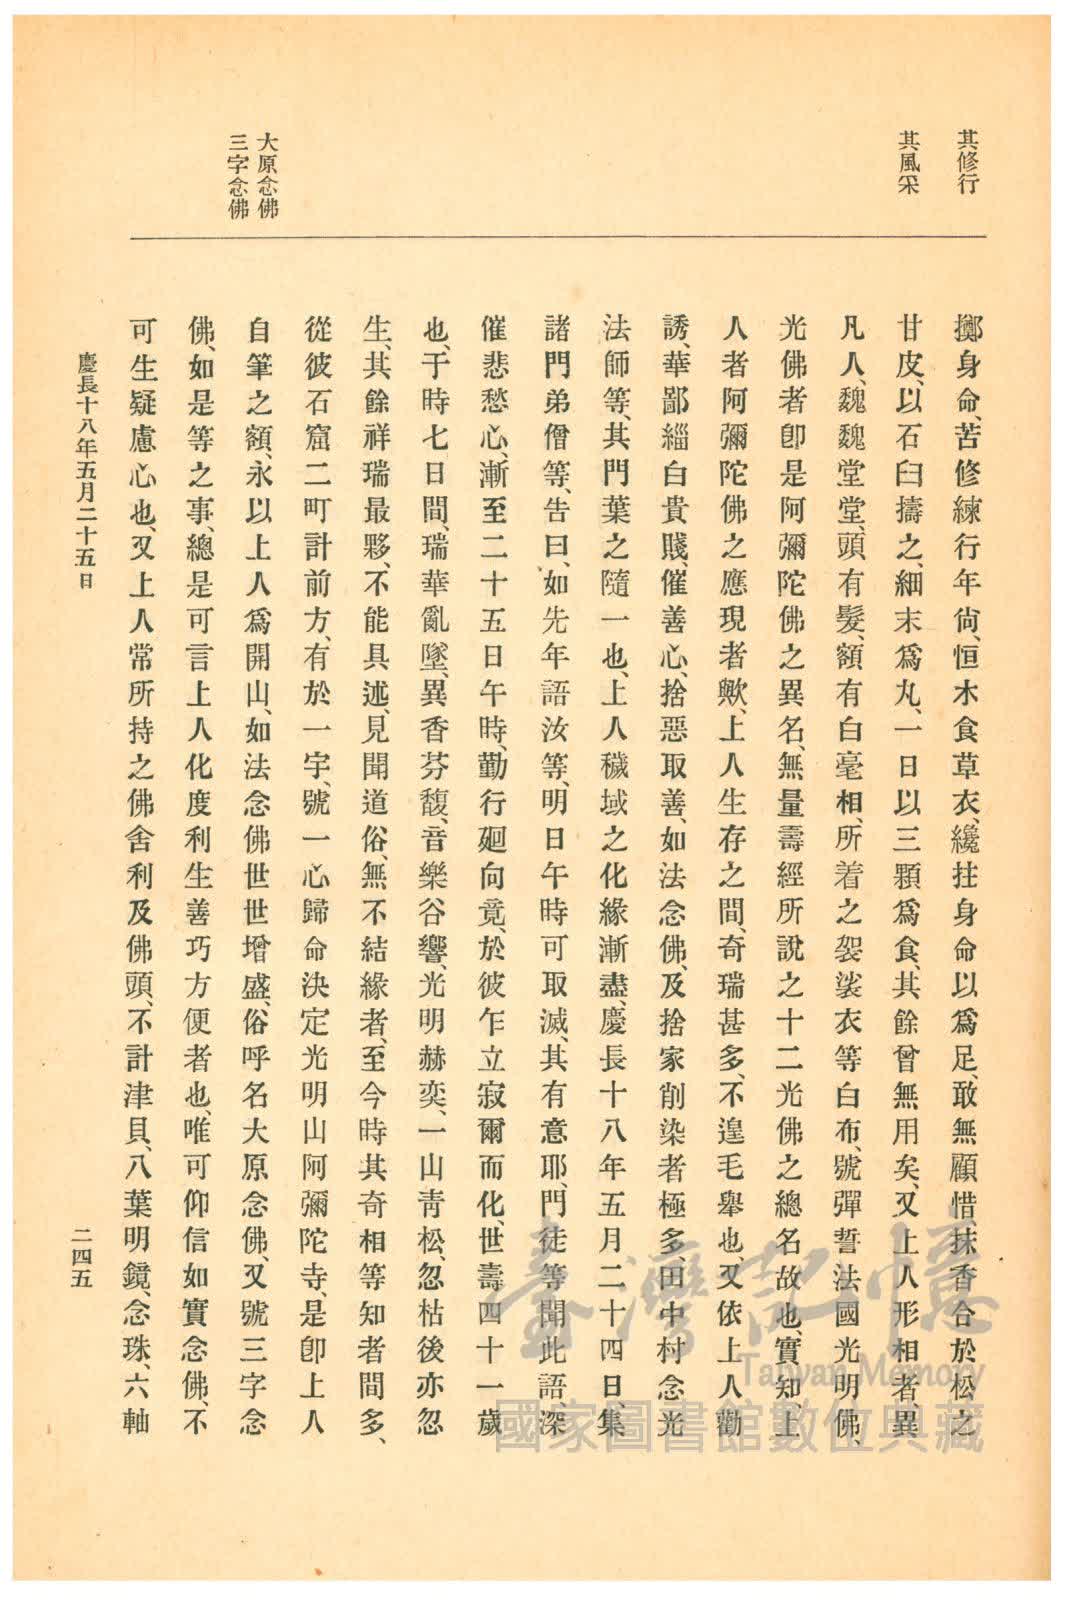 其修行
其風采
大原念佛
三字念佛
擲身命、苦修練行年尙、恒木食草衣、纔拄身命以爲足、敢無顧惜、抹香合於松之
甘皮、以石臼擣之、細末爲丸、一日以三顆爲食、其餘曾無用矣、又上人形相者、異
凡人、魏魏堂堂、頭有髮、額有白毫相、所着之袈裟衣等白布、號彈誓法國光明佛、
光佛者卽是阿彌陀佛之異名、無量壽經所說之十二光佛之總名故也、實知上
人者阿彌陀佛之應現者歟、上人生存之間、奇瑞甚多、不遑毛舉也、又依上人勸
誘、華鄙緇白貴賤、催善心、捨惡取善、如法念佛、及捨家削染者極多、田中村念光
法師等、其門葉之隨一也、上人穢域之化緣漸盡、慶長十八年五月二十四日、集
諸門弟僧等、告曰、如先年語汝等、明日午時可取滅、其有意耶、門徒等聞此語、深
催悲愁心、漸至二十五日午時、勤行廻向竟、於彼乍立寂爾而化、世壽四十一歲
也、于時七日間、瑞華亂墜、異香芬馥、音樂谷響、光明赫奕、一山靑松、忽枯後亦忽
生、其餘祥瑞最夥、不能具述、見聞道俗、無不結緣者、至今時其奇相等知者間多、
從彼石窟二町計前方、有於一宇、號一心歸命決定光明山阿彌陀寺、是卽上人
自筆之額、永以上人爲開山、如法念佛世世增盛、俗呼名大原念佛、又號三字念
佛、如是等之事、總是可言上人化度利生善巧方便者也、唯可仰信如實念佛、不
可生疑慮心也、又上人常所持之佛舍利及佛頭、不計津貝、八葉明鏡、念珠、六軸
慶長十八年五月二十五日
二四五
臺灣記憶
Taiwan Memory
國家圖書館數位典藏